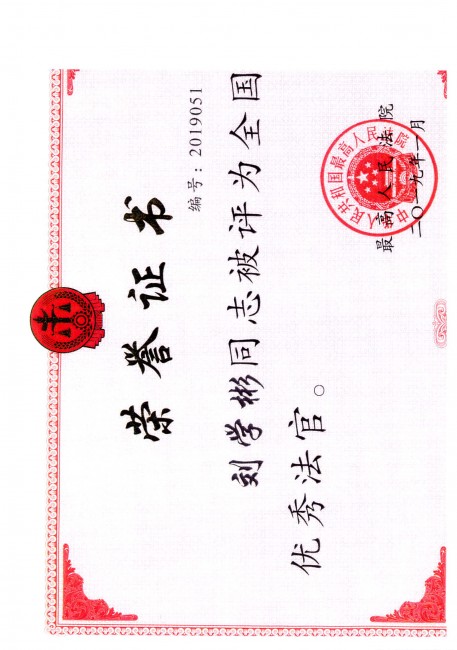 荣誉证书
编号：2019051
刘学彬同志被评为全国
优秀法官。
最高人民法院
二〇一九年一月
中华人民共和国最高人民法院